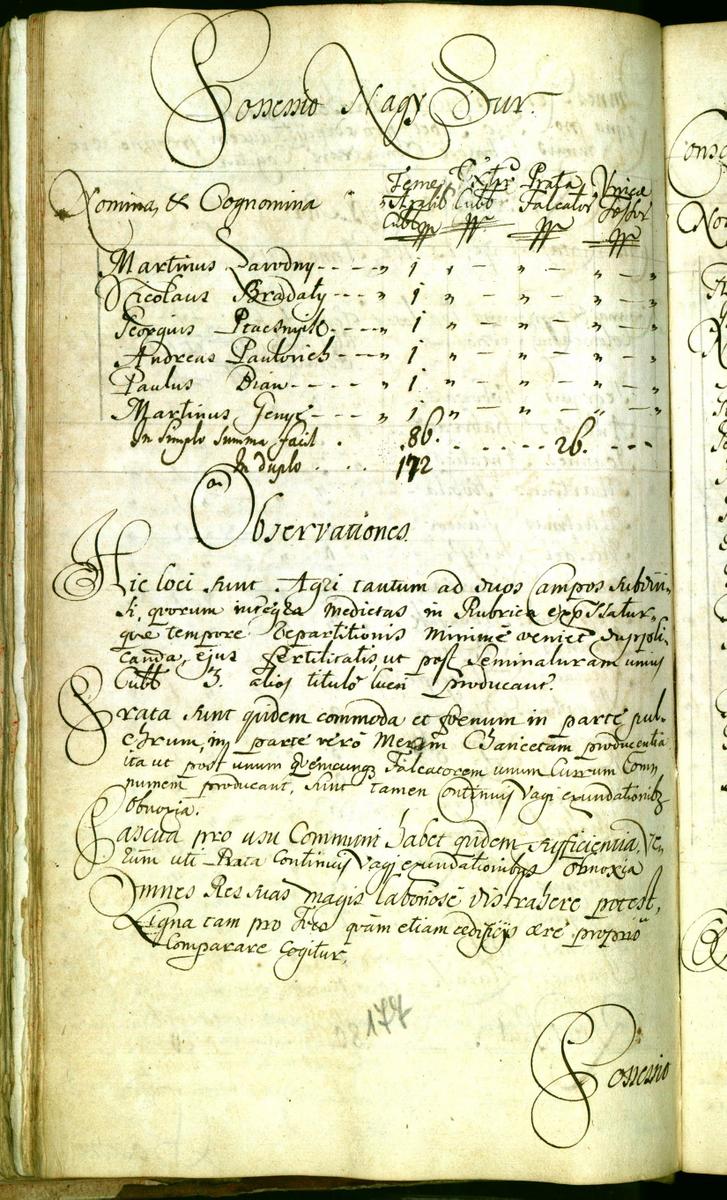 Possessio Nagy Sur.
Nomina & Cognomina
Prata
Falcator
Martinus Zavodny - - - - „ 1 „ - „ - „ „
Nicolaus Bradaty - - - „ 1 „ - „ - „ „
Georgius - - - „ 1 „ - „ - „ „
Andreas Paulovich - - - „ 1 „ - „ - „ „
Paulus Dian - - - - „ 1 „ - „ - „ „
Martinus - - - „ 1 „ - „ - „ „
In Simplo Summa facit . 86. . . . . . 26. . . .
In duplo . . . 172
Observationes
Hic loci sunt Agri tantum ad duos Campos subdivi-
si, quorum integra medietas in Rubrica
que tempore Departitionis minime veniet duppli-
canda, ejus fertilitatis, ut post Seminaturam unius
Cubb 3. alios titulo lucri producant.
Prata sunt quidem commoda et foenum in parte pul-
chrum, in parte vero Merum Charicetam producentia
ita ut post unum quemcunq Falcatorem unum Currum Com-
munem producant, sunt tamen Continuis Vagi exundationib9
Obnoxia.
Pascua pro usu Communi habet quidem sufficientia, ve-
rum uti Prata Continuis Vagi exundationibus obnoxia
Omnes Res suas magis laboriose distrahere potest,
Ligna tam pro Foco quam etiam aedificijs aere proprio
Comparare Cogitur.
177
Possessio